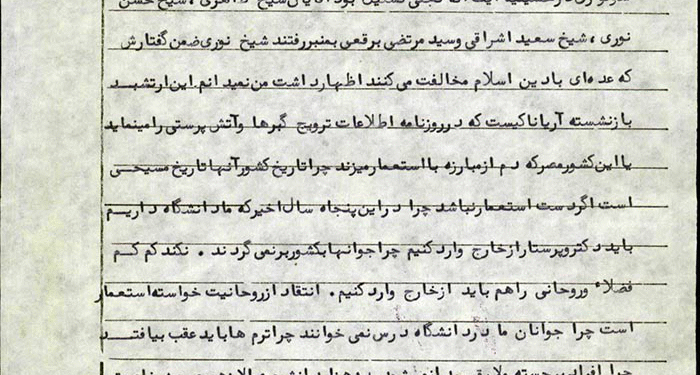 نوری، شیخ سعید اشراقی وسید مرتضی برقعی بمنبررفتند شیخ نوری ضمن گفتارش
که عده‌ای بادین اسلام مخالفت می‌کنند اظهارداشت من نمیدانم این ارتشبد
بازنشسته آریانا کیست که درروزنامه اطلاعات ترویج گبرها وآتش پرستی رامینماید
یااین کشورمصرکه دم ازمبارزه بااستعمارمیزند چراتاریخ کشورآنهاتاریخ مسیحی
است اگردست استعمارنباشد چرا دراین پنجاه سال اخیرکه مادانشگاه داریم
باید دکتروپرستارازخارج واردکنیم چراجوانهابکشوربرنمی‌گردند . نکند کم کم
فضلاء وروحانی راهم باید ازخارج واردکنیم . انتقاد ازروحانیت خواسته استعمار
است چرا جوانان ما دردانشگاه درس نمی خوانند چراترم هاباید عقب بیافتد